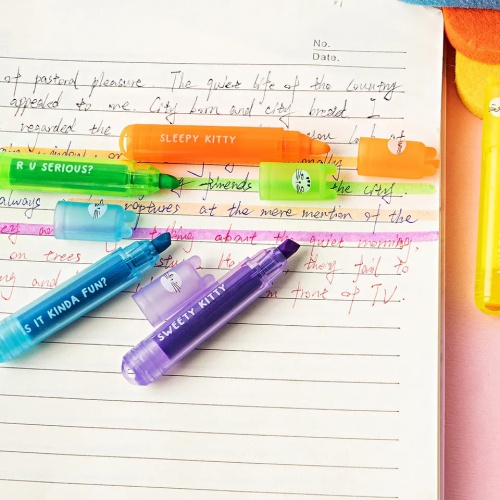 No.
Date.
of pastoral pleasure The quiet life of the country
appealed to me City born and city bred I
regarded the
SLEEPY KITTY
R U SERIOUS?
friends the city.
always raptures at the mere mention of the
talking about the quiet morning,
on trees they fail to
ng and in front of TV.
S IT KINDA FUN?
SWEETY KITTY